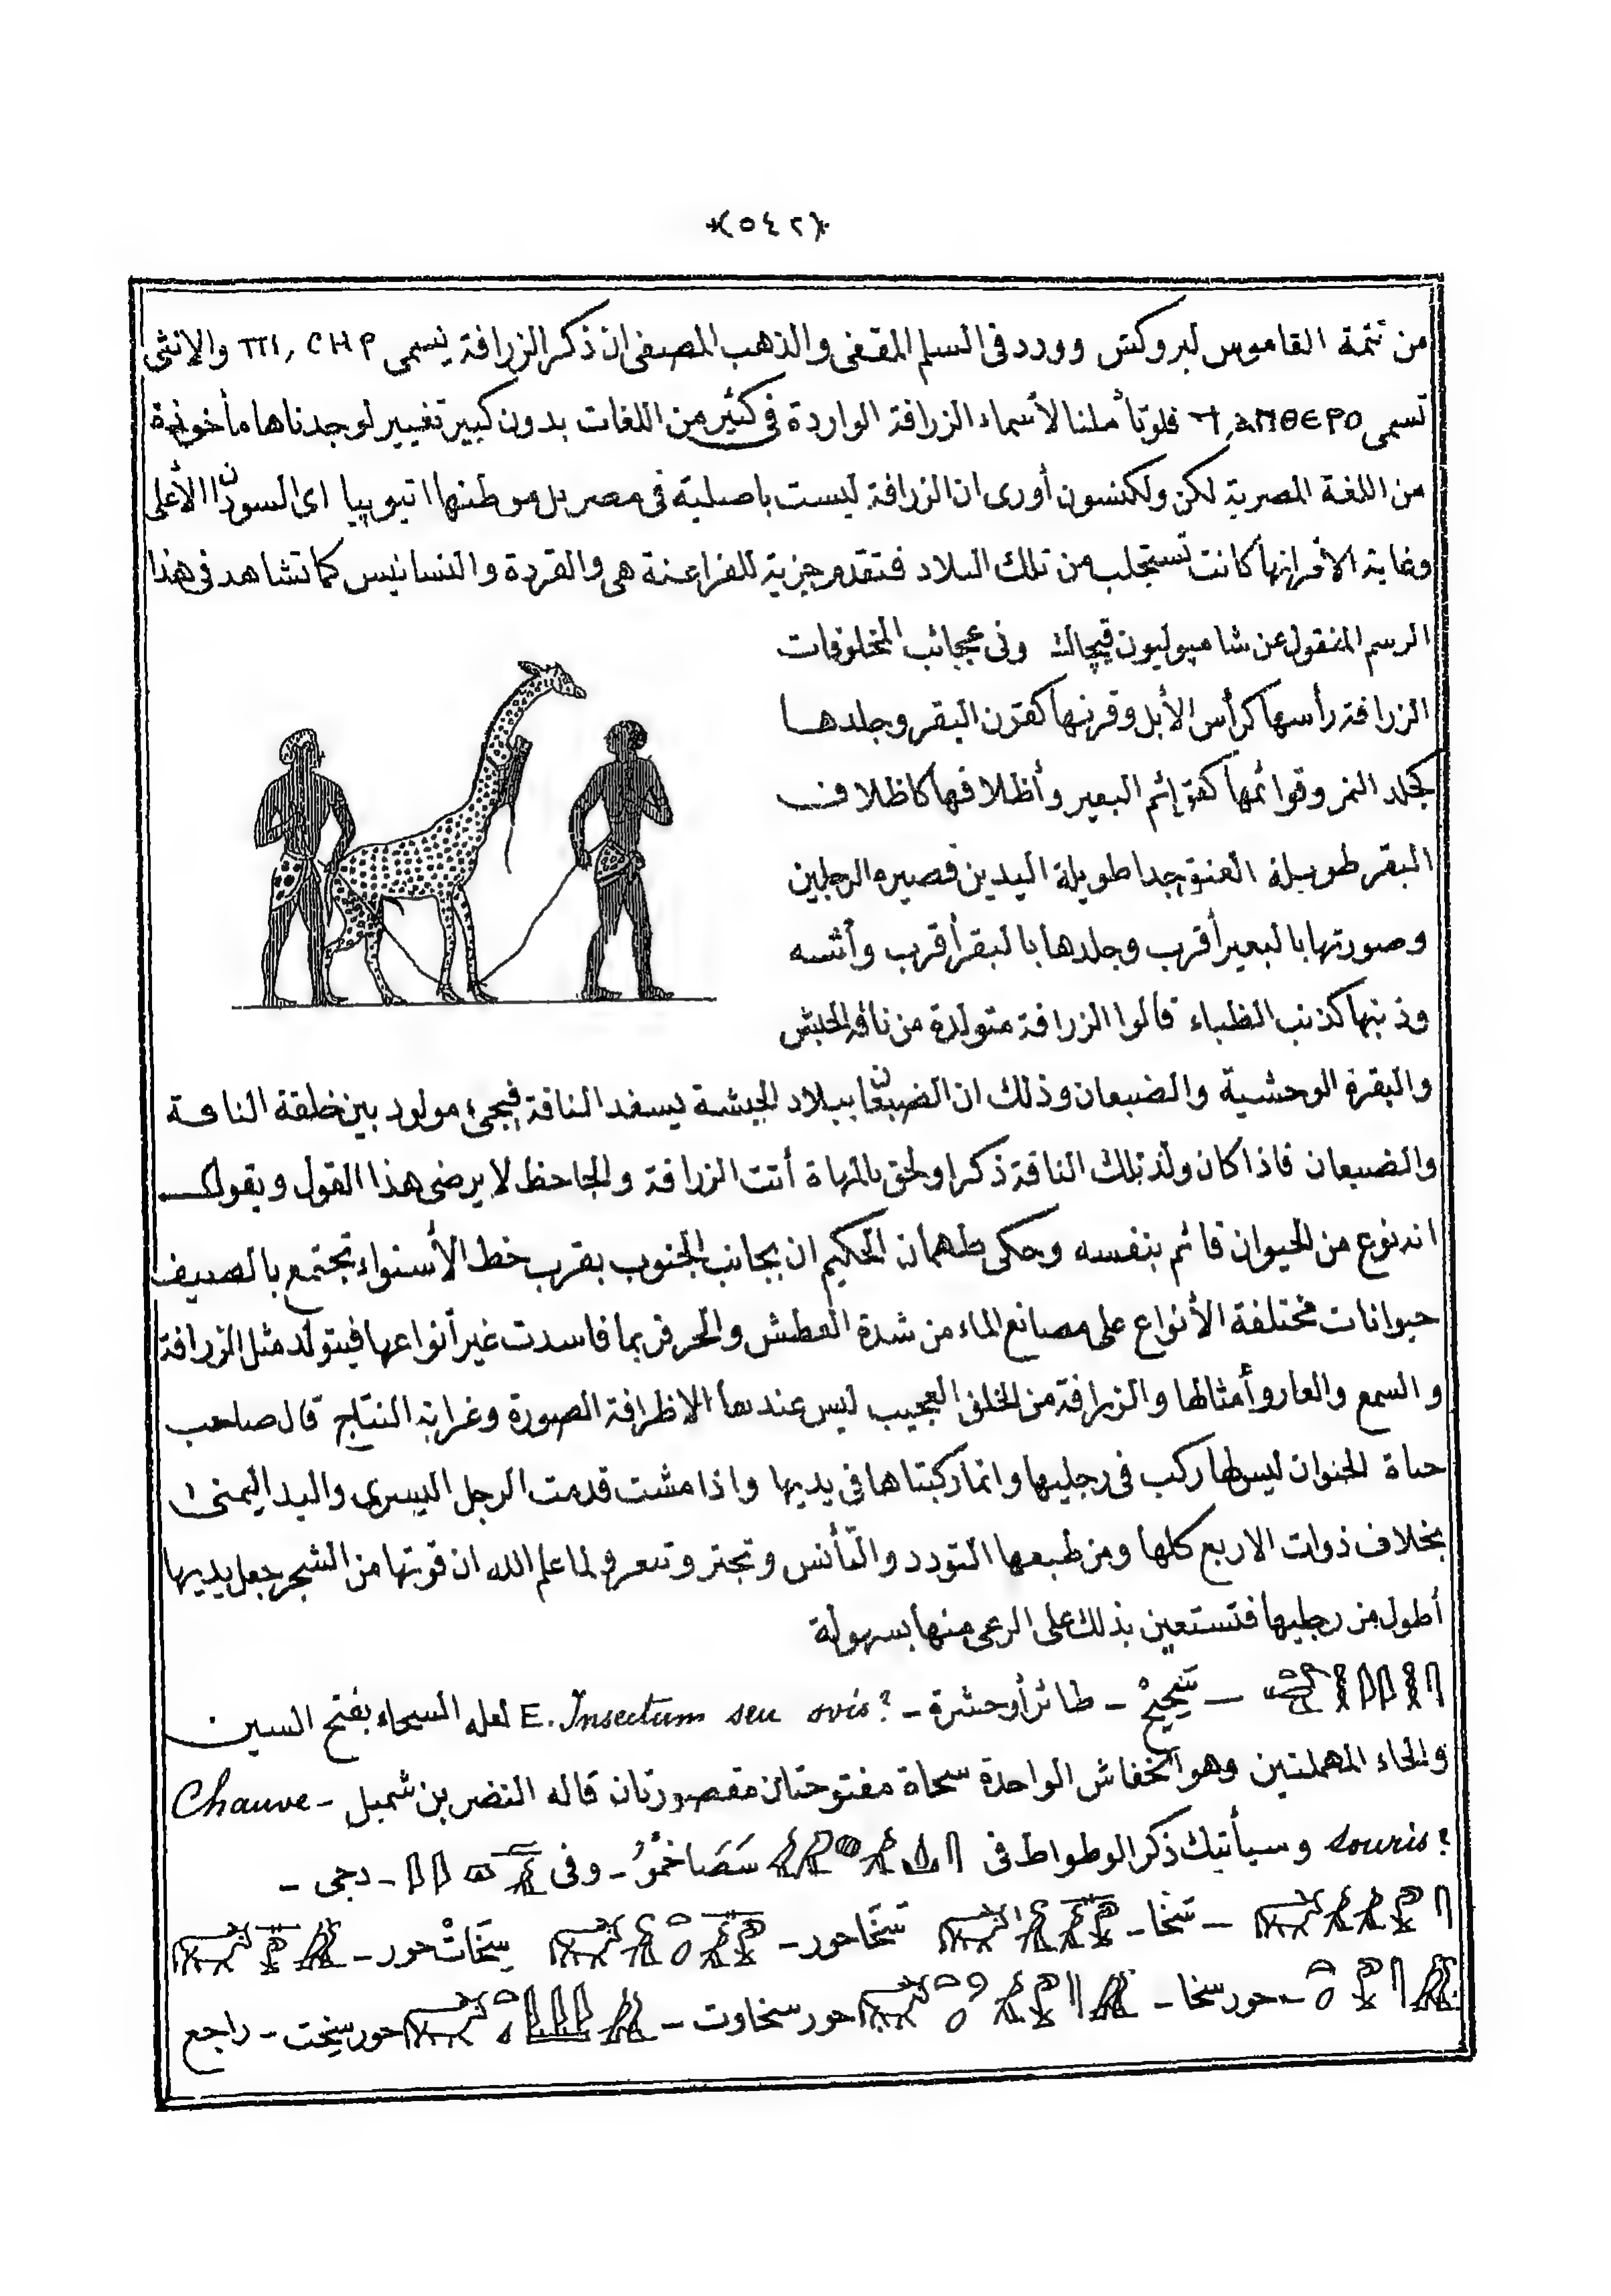 *(٥٤٢)*
من تتمة القاموس لبروكش وورد فى السلم المقفى والذهب المصفى ان ذكر الزرافة يسمى ⲡⲓ, ⲥⲏⲣ والانثى
تسمى ϯ,ⲁⲛⲑⲉⲣⲟ فلو تأملنا لأسماء الزرافة الواردة فى كثير من اللغات بدون كبير تغيير لوجدناها مأخوذة
من اللغة المصرية لكن ولكنسون أورى ان الزرافة ليست باصلية فى مصر بل موطنها اتيوپيا اى السودان الأعلى
وغاية الأمر انها كانت تستجلب من تلك البلاد فتقدم جزية للفراعنة هى والقردة والنسانيس كما تشاهد فى هذا
الرسم المنقول عن شامپوليون فيچاك وفى عجائب المخلوقات
الزرافة رأسها كرأس الأبل وقرنها كقرن البقر وجلدها
كجلد النمر وقوائمها كقوائم البعير وأظلافها كاظلاف
البقر طويلة العنق جدا طويلة اليدين قصيرة الرجلين
وصورتها بالبعير أقرب وجلدها بالبقر أقرب وأشبه
وذنبها كذنب الظباء قالوا الزرافة متولدة من ناقة الحبش
والبقرة الوحشية والضبعان وذلك ان الضبعان ببلاد الحبشة يسفد الناقة فيجىء مولود بين خلقة الناقة
والضبعان فاذا كان ولد تلك الناقة ذكرا ولحق بالمهاة أتت الزرافة والجاحظ لا يرضى هذا القول ويقول
انه نوع من الحيوان قائم بنفسه وحكى طهمان الحكيم ان بجانب الجنوب بقرب خط الأستواء تجتمع بالصيف
حيوانات مختلفة الأنواع على مصانع الماء من شدة العطش والحر فربما فاسدت غير أنواعها فيتولد مثل الزرافة
والسمع والعار وأمثالها والزرافة من الخلق العجيب ليس عندها الا ظرافة الصورة وغرابة النتاج قال صاحب
حياة الحيوان ليس لها ركب فى رجليها وانما ركبتاها فى يديها واذا مشت قدمت الرجل اليسرى واليد اليمنى
بخلاف ذوات الاربع كلها ومن طبعها التودد والتأنس وتجتر وتبعر ولما علم الله ان قوتها من الشجر جعل يديها
أطول من رجليها فتستعين بذلك على الرعى منها بسهولة
– طائر أو حشرة – E. Insectum seu avis? لعله السحاء بفتح السين
والحاء المهملتين وهو الخفاش الواحدة سحاة مفتوحتان مقصورتان قاله النضر بن شميل – Chauve
souris? وسيأتيك ذكر الوطواط فى سَصَاخمُوُ – وفى – دجى –
– سَخَا – سَخَا حور – سِخَاتْ حور –
– حور سخا – حور سخاوت – حور سِخت – راجع